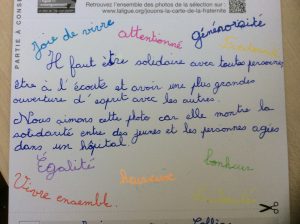 Retrouvez l'ensemble des photos de la sélection sur :
www.laligue.org/jouons-la-carte-de-la-fraternite
Joie de vivre attentionné générosité
Il faut être solidaire avec toute personne,
être à l'écoute et avoir une plus grande
ouverture d'esprit avec les autres.
Nous aimons cette photo car elle montre la
solidarité entre des jeunes et les personnes agées
dans un hôpital.
Égalité bonheur
Vivre ensemble. heureux